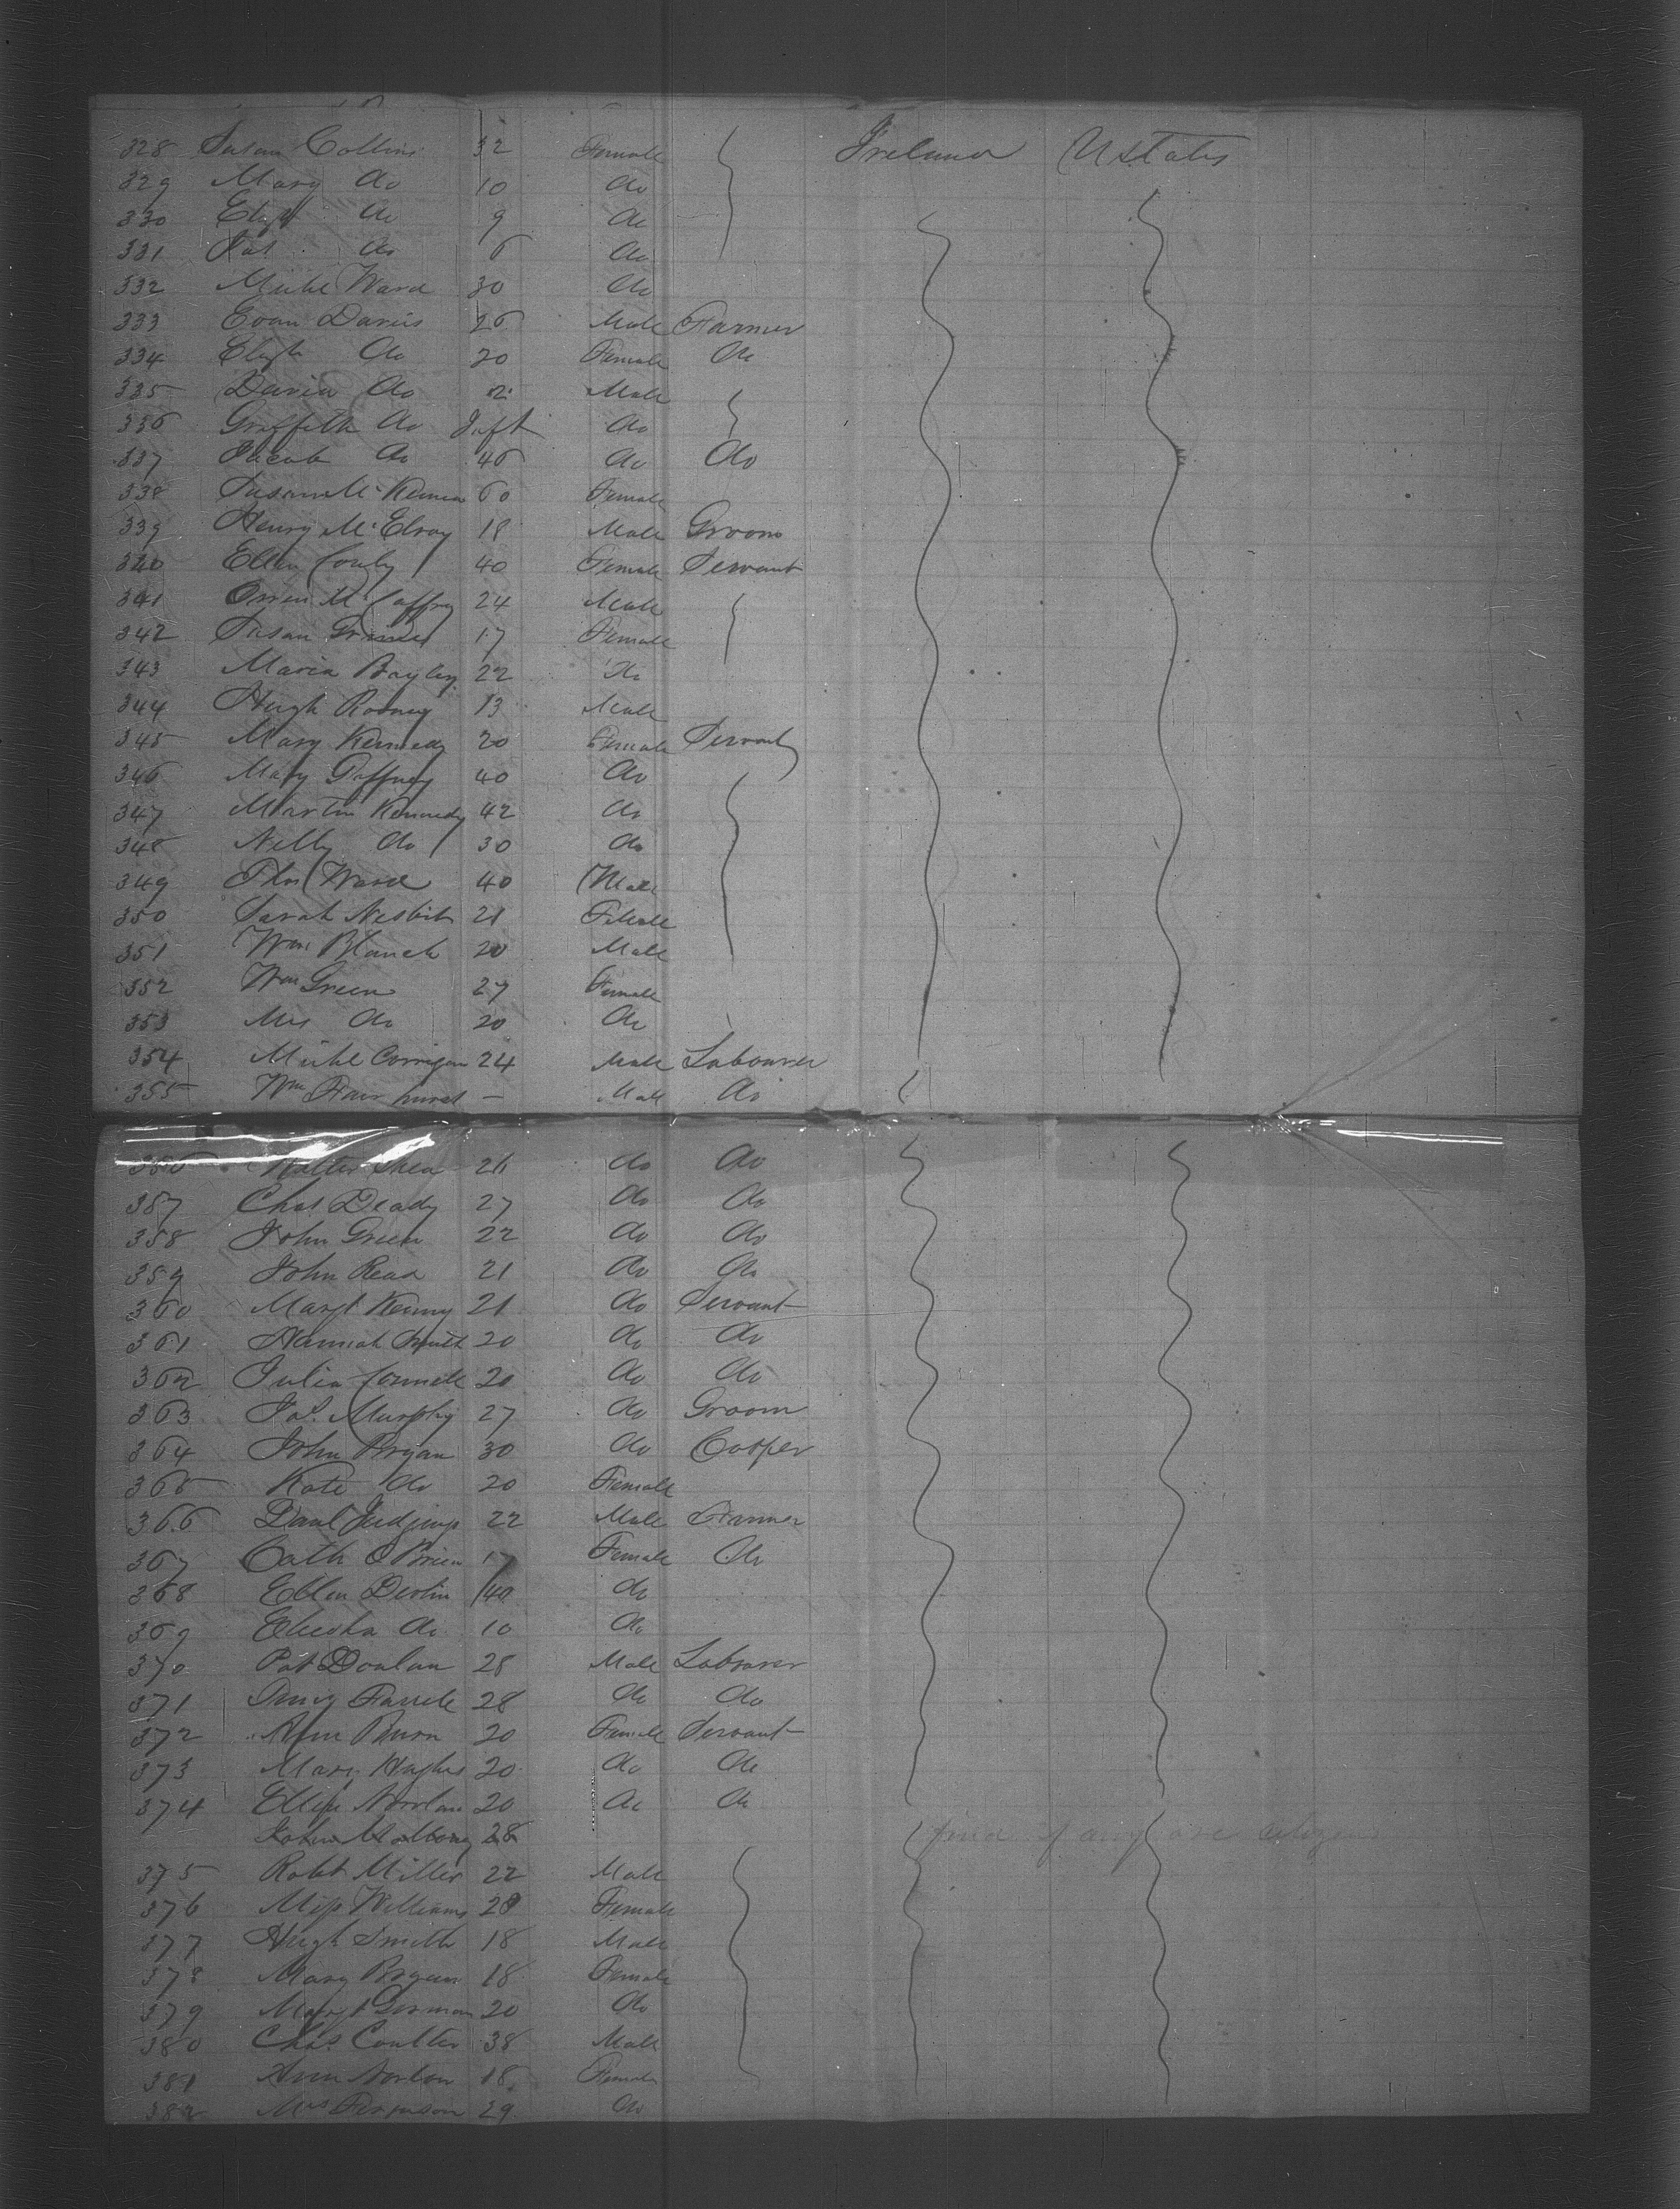 328 Susan Collins 32 Female Ireland U States
329 Mary do 10 do
330 Eliza do 9 do
331 Pat do 6 do
332 Michl Ward 30 do
333 Evan Davies 26 Male Farmer
334 Elizth do 20 Female do
335 David do 2 Male
336 Griffith do Inft do
337 Jacob do 46 do do
338 Susan McKenna 60 Female
339 Henry McElroy 18 Male Groom
340 Ellen Conly 40 Female Servant
341 Owen McCaffrey 24 Male
342 Susan 17 Female
343 Maria Bayley 22 do
344 Hugh Rooney 13 Male
345 Mary Kennedy 20 Female Servant
346 Mary Gaffney 40 do
347 Martin Kennedy 42 do
348 Nelly do 30 do
349 Thos Ward 40 Male
350 Sarah Nesbit 21 Female
351 Wm Blanch 20 Male
352 Wm Green 27 Female
353 Mrs do 20 do
354 Michl Corrigan 24 Male Labourer
355 Wm Fairhurst - Male do
356 Walter Shea 26 do do
357 Chas Deady 27 do do
358 John Green 22 do do
359 John Read 21 do do
360 Margt Kenny 21 do Servant
361 Hannah Smith 20 do do
362 Julia Connell 20 do do
363 Jas. Murphy 27 do Groom
364 John Bryan 30 do Cooper
365 Kate do 20 Female
366 Danl 22 Male Farmer
367 Cath O'Brien 17 Female do
368 Ellen Devlin 40 do
369 do 10 do
370 Pat Donlan 28 Male Labourer
371 Farrell 28 do do
372 Ann Burn 20 Female Servant
373 Mary Hughes 20 do do
374 Nowlan 20 do do
John 28 find if any are citizens
375 Robt Miller 22 Male
376 Miss Williams 28 Female
377 Hugh Smith 18 Male
378 Mary Bryan 18 Female
379 Margt Gorman 20 do
380 Chas. Coulter 38 Male
381 Ann Norton 18 Female
382 Mrs Ferguson 29 do